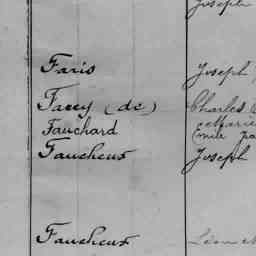 Joseph
Faris Joseph
Farcy (de) Charles
Fauchard (mile
Faucheux Joseph
Faucheux Léon